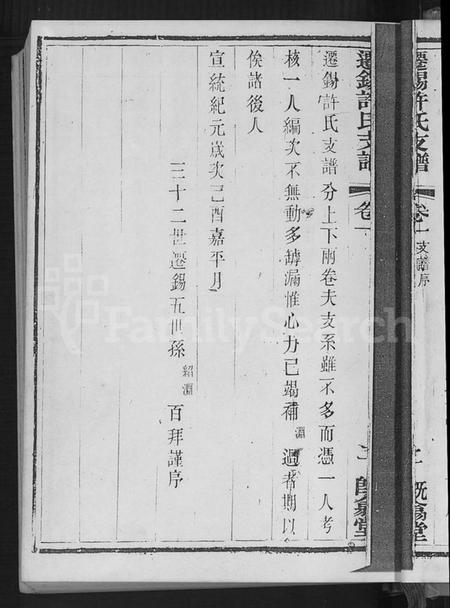 遷錫許氏支譜 卷一 支譜序
遷錫許氏支譜分上下兩卷夫支系雖不多而憑一人考
核一人編次不無動多罅漏惟心力已竭補淵過者期以
俟諸後人
宣統紀元歲次己酉嘉平月
三十二世遷錫五世孫紹淵百拜謹序
遷錫許氏支譜
卷一
FamilySearch